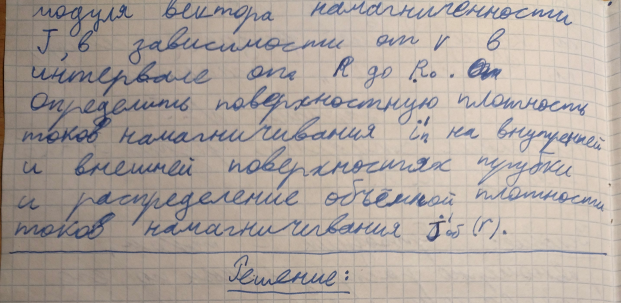 модуля вектора намагниченности
J, в зависимости от r в
интервале от R до R₀.
Определить поверхностную плотность
токов намагничивания i'п на внутренней
и внешней поверхностях трубки
и распределение объёмной плотности
токов намагничивания j'об (r).
Решение: